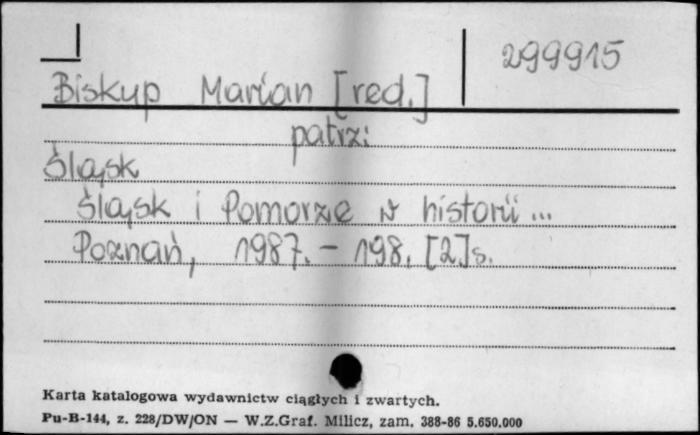 299915
Biskup Marian [red.]
patrz:
Śląsk
Śląsk i Pomorze w historii ...
Poznań, 1987. - 198, [2] s.
Karta katalogowa wydawnictw ciągłych i zwartych.
Pu-B-144, z. 228/DW/ON — W.Z.Graf. Milicz, zam. 388-86 5.650.000